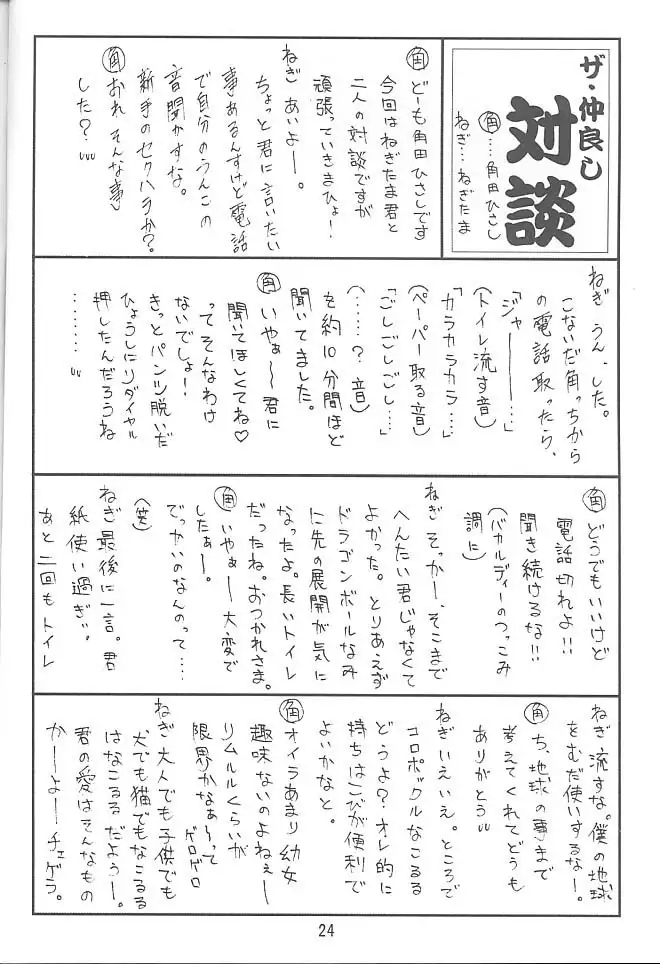 ザ・仲良し
対談
角……角田ひさし
ねぎ…ねぎたま
角 どーも角田ひさしです
今回はねぎたま君と
二人の対談ですが
頑張っていきまひょ!
ねぎ あいよー。
ちょっと君に言いたい
事あるんすけど電話
で自分のうんこの
音聞かすな。
新手のセクハラか?
角 おれそんな事
した?
ねぎ うん、した。
こないだ角っちから
の電話取ったら、
「ジャー――…」
(トイレ流す音)
「カラカラカラ…」
(ペーパー取る音)
「ごしごしごし…」
(……?音)
を約10分間ほど
聞いてました。
角 いやぁ〜君に
聞いてほしくてね♡
ってそんなわけ
ないでしょ!
きっとパンツ脱いだ
ひょうしにリダイヤル
押したんだろうね
………
角 どうでもいいけど
電話切れよ!!
聞き続けるな!!
(バカルディーのつっこみ
調に)
ねぎ そっかー、そこまで
へんたい君じゃなくて
よかった。とりあえず
ドラゴンボールなみ
に先の展開が気に
なったよ。長いトイレ
だったね。おつかれさま。
角 いやぁー大変で
したぁー。
でっかいのなんのって…
(笑)
ねぎ 最後に一言。君
紙使い過ぎ。
あと二回もトイレ
ねぎ 流すな。僕の地球
をむだ使いするなー。
角 ち、地球の事まで
考えてくれてどうも
ありがとう
ねぎ いえいえ。ところで
コロポックルなこるる
どうよ?オレ的に
持ちはこびが便利で
よいかなと。
角 オイラあまり幼女
趣味ないのよねぇー
リムルルくらいが
限界かなぁ〜って
ゲロゲロ
ねぎ 大人でも子供でも
犬でも猫でもなこるる
はなこるるだよぅー。
君の愛はそんなもの
かーよーチェゲラ。
24